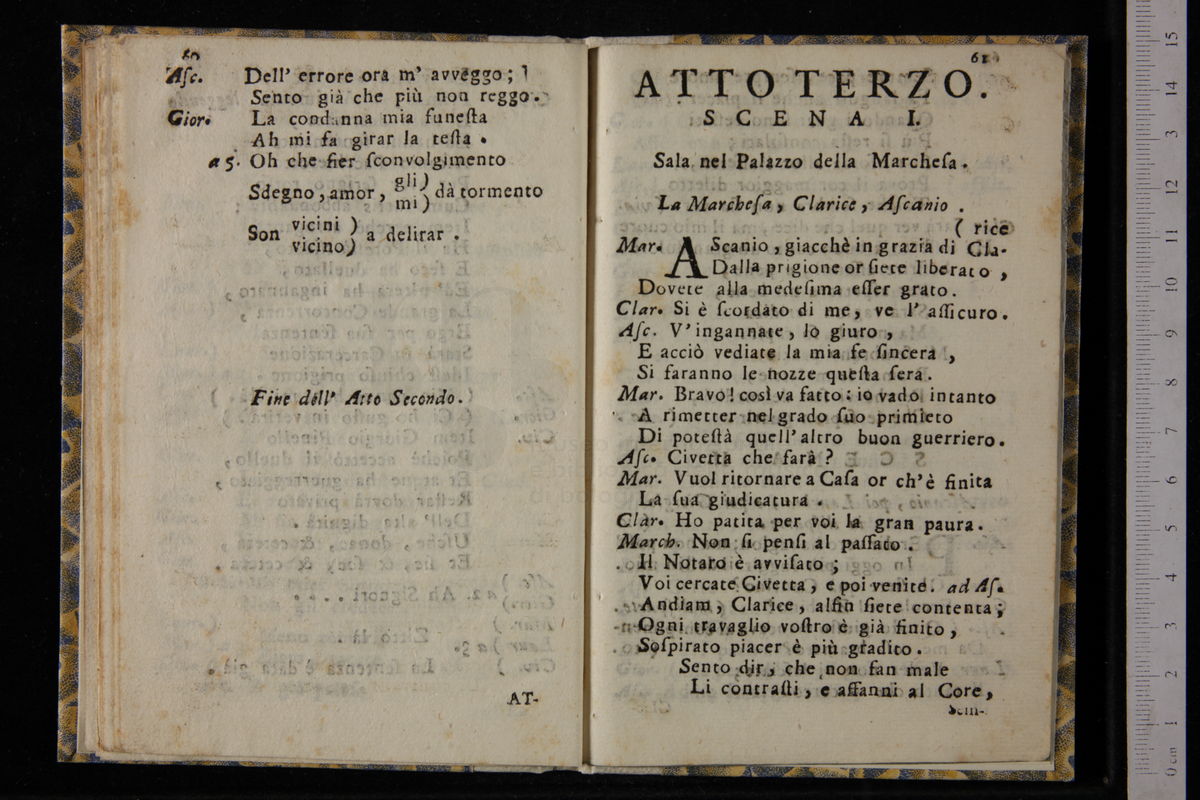 60
Aſc. Dell' errore ora m' avveggo;
Sento già che più non reggo.
Gior. La condanna mia funeſta
Ah mi fa girar la teſta.
a 5. Oh che fier ſconvolgimento
Sdegno, amor, gli) mi) dà tormento
Son vicini) vicino) a delirar.
Fine dell' Atto Secondo.
AT-
61
ATTO TERZO.
SCENA I.
Sala nel Palazzo della Marcheſa.
La Marcheſa, Clarice, Aſcanio.
( rice
Mar. AScanio, giacchè in grazia di Cla-
Dalla prigione or ſiete liberato,
Dovete alla medeſima eſſer grato.
Clar. Si è ſcordato di me, ve l' aſſicuro.
Aſc. V' ingannate, lo giuro,
E acciò vediate la mia fe ſincera,
Si faranno le nozze queſta ſera.
Mar. Bravo! così va fatto: io vado intanto
A rimetter nel grado ſuo primieto
Di poteſtà quell' altro buon guerriero.
Aſc. Civetta che farà?
Mar. Vuol ritornare a Caſa or ch' è finita
La ſua giudicatura.
Clar. Ho patita per voi la gran paura.
March. Non ſi penſi al paſſato.
Il Notaro è avviſato;
Voi cercate Civetta, e poi venite. ad Aſ.
Andiam, Clarice, alfin ſiete contenta;
Ogni travaglio voſtro è già finito,
Soſpirato piacer è più gradito.
Sento dir, che non fan male
Li contraſti, e affanni al Core,